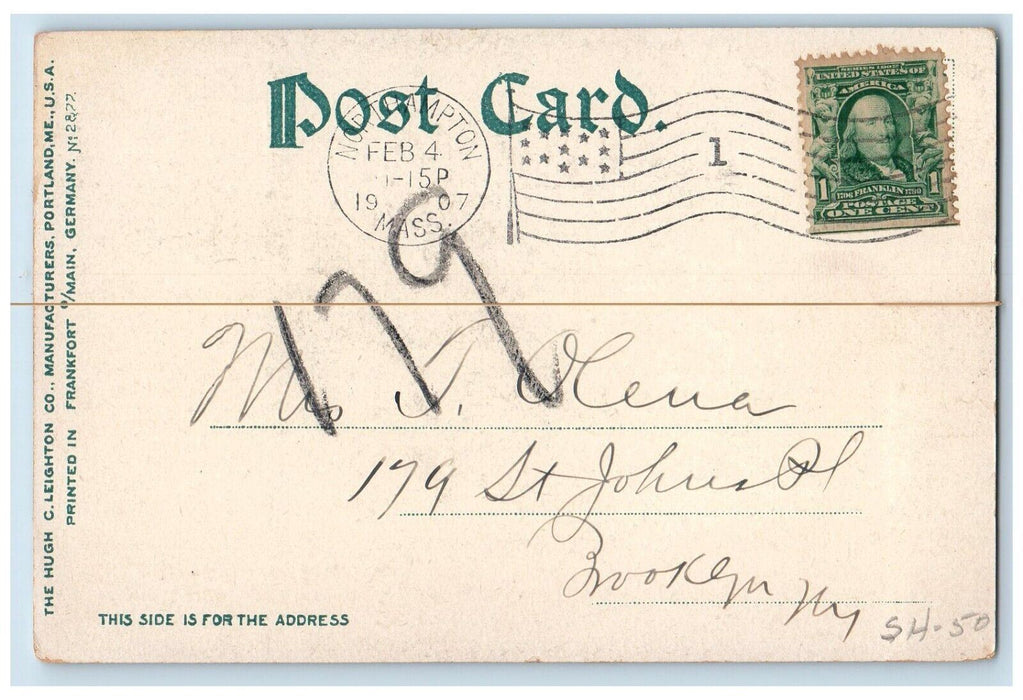 Post Card.
NORTHAMPTON
FEB 4
1-15P
19 07
MASS.
1
SERIES 1902
UNITED STATES OF
AMERICA
1706 FRANKLIN 1790
1 1
POSTAGE
ONE CENT
179
Mrs T. Olena
179 St Johns Pl
Brooklyn Ny
THIS SIDE IS FOR THE ADDRESS
SH-50
THE HUGH C. LEIGHTON CO., MANUFACTURERS, PORTLAND, ME., U.S.A.
PRINTED IN FRANKFORT o/MAIN, GERMANY. No 2877